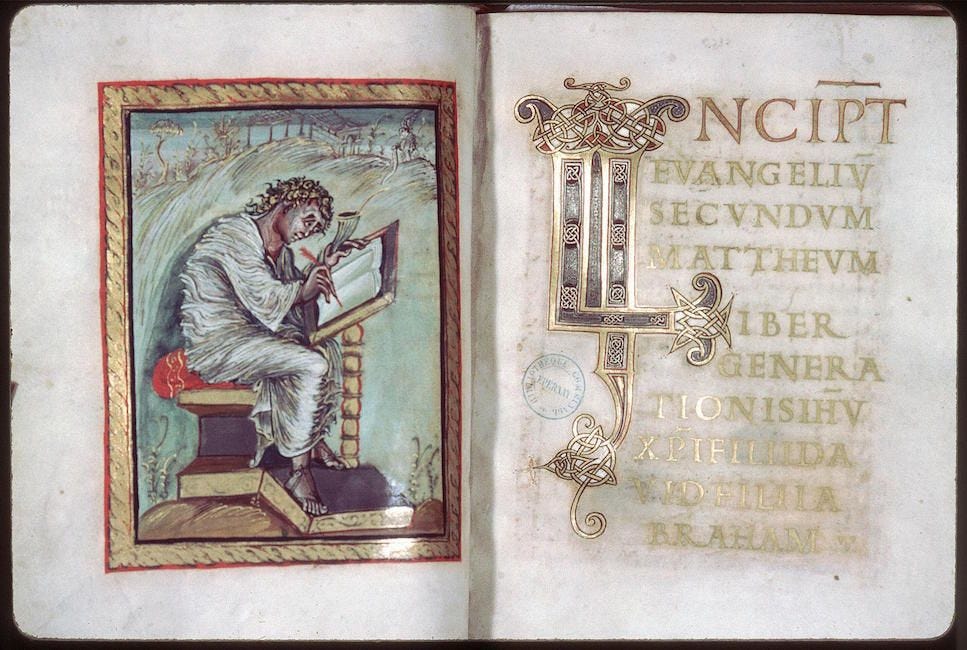 INCIP̅T
EVANGELIV̅
SECVNDVM
MATTHEVM
LIBER
GENERA
TIONIS IH̅V
XP̅I FILII DA
VID FILII A
BRAHAM
BIBLIOTHEQUE
EPERNAY